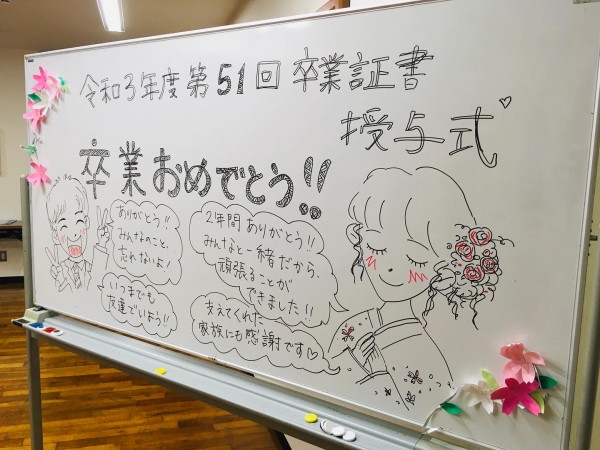 令和3年度第51回卒業証書
授与式
卒業おめでとう!!
ありがとう!!
みんなのこと、
忘れないよ!
いつまでも
友達でいよう!!
2年間ありがとう!!
みんなと一緒だから、
頑張ることが
できました!!
支えてくれた
家族にも感謝です♡